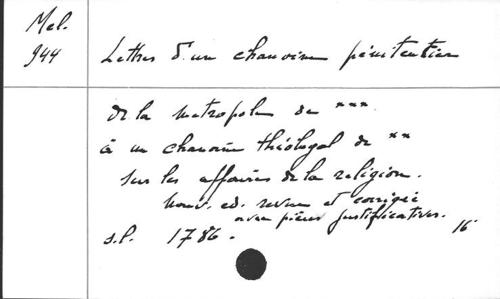 Mel.
944
Lettres d'un chanoine pénitentier
de la metropole de ***
à un chanoine théologal de **
sur les affaires de la religion.
Nouv. ed. revue et corrigée
avec pièces justificatives.
s.l. 1786. 16°